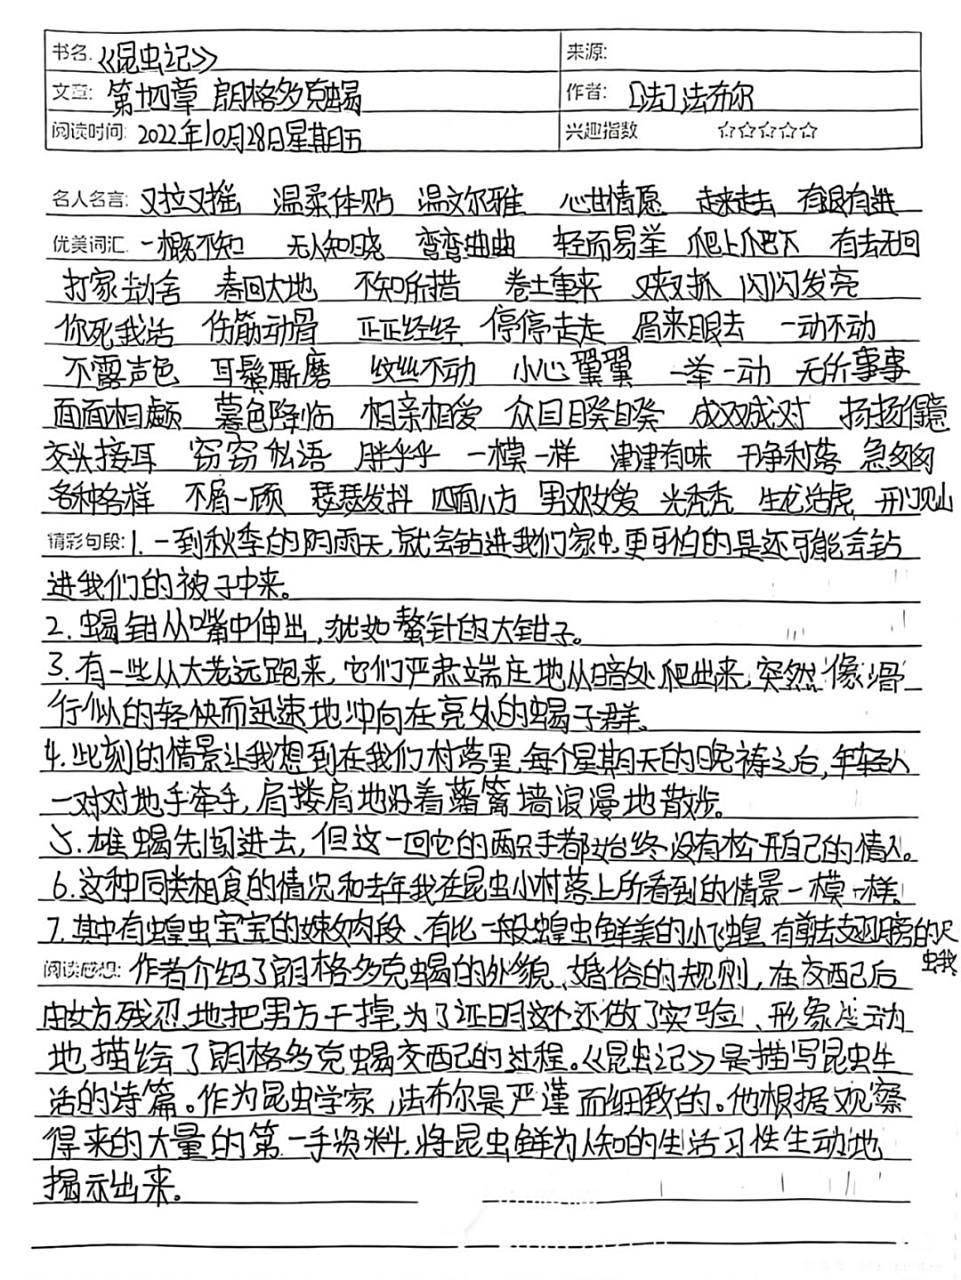 书名: 《昆虫记》 来源:
文章: 第十四章 朗格多克蝎 作者: [法]法布尔
阅读时间: 2022年10月28日星期五 兴趣指数 ☆☆☆☆☆
名人名言: 又拉又摇 温柔体贴 温文尔雅 心甘情愿 走来走去 有退有进
优美词汇. 一概不知 无人知晓 弯弯曲曲 轻而易举 爬上爬下 有去无回
打家劫舍 春回大地 不知所措 卷土重来 又挠又抓 闪闪发亮
你死我活 伤筋动骨 正正经经 停停走走 眉来眼去 一动不动
不露声色 耳鬓厮磨 纹丝不动 小心翼翼 一举一动 无所事事
面面相觑 暮色降临 相亲相爱 众目睽睽 成双成对 扬扬得意
交头接耳 窃窃私语 胖乎乎 一模一样 津津有味 干净利落 急匆匆
各种各样 不屑一顾 瑟瑟发抖 四面八方 男欢女爱 光秃秃 生龙活虎 开门见山
精彩句段: 1. 一到秋季的阴雨天,就会钻进我们家中,更可怕的是还可能会钻
进我们的被子中来。
2. 蝎钳从嘴中伸出,犹如螯针的大钳子。
3. 有一些从大老远跑来,它们严肃端庄地从暗处爬出来,突然像滑
行似的轻快而迅速地冲向在亮处的蝎子群。
4. 此刻的情景让我想到在我们村落里,每个星期天的晚祷之后,年轻人
一对对地手牵手,肩搂肩地沿着藩篱墙浪漫地散步。
5. 雄蝎先闯进去,但这一回它的两只手都始终没有松开自己的情人。
6. 这种同类相食的情况和去年我在昆虫小村落上所看到的情景一模一样。
7. 其中有蝗虫宝宝的嫩肉段、有比一般蝗虫鲜美的小飞蝗,有剪去翅膀的尺
蛾
阅读感想: 作者介绍了朗格多克蝎的外貌、婚俗的规则,在交配后
由女方残忍地把男方干掉,为了证明这个还做了实验、形象生动
地描绘了朗格多克蝎交配的过程。《昆虫记》是描写昆虫生
活的诗篇。作为昆虫学家,法布尔是严谨而细致的。他根据观察
得来的大量的第一手资料,将昆虫鲜为人知的生活习性生动地
揭示出来。